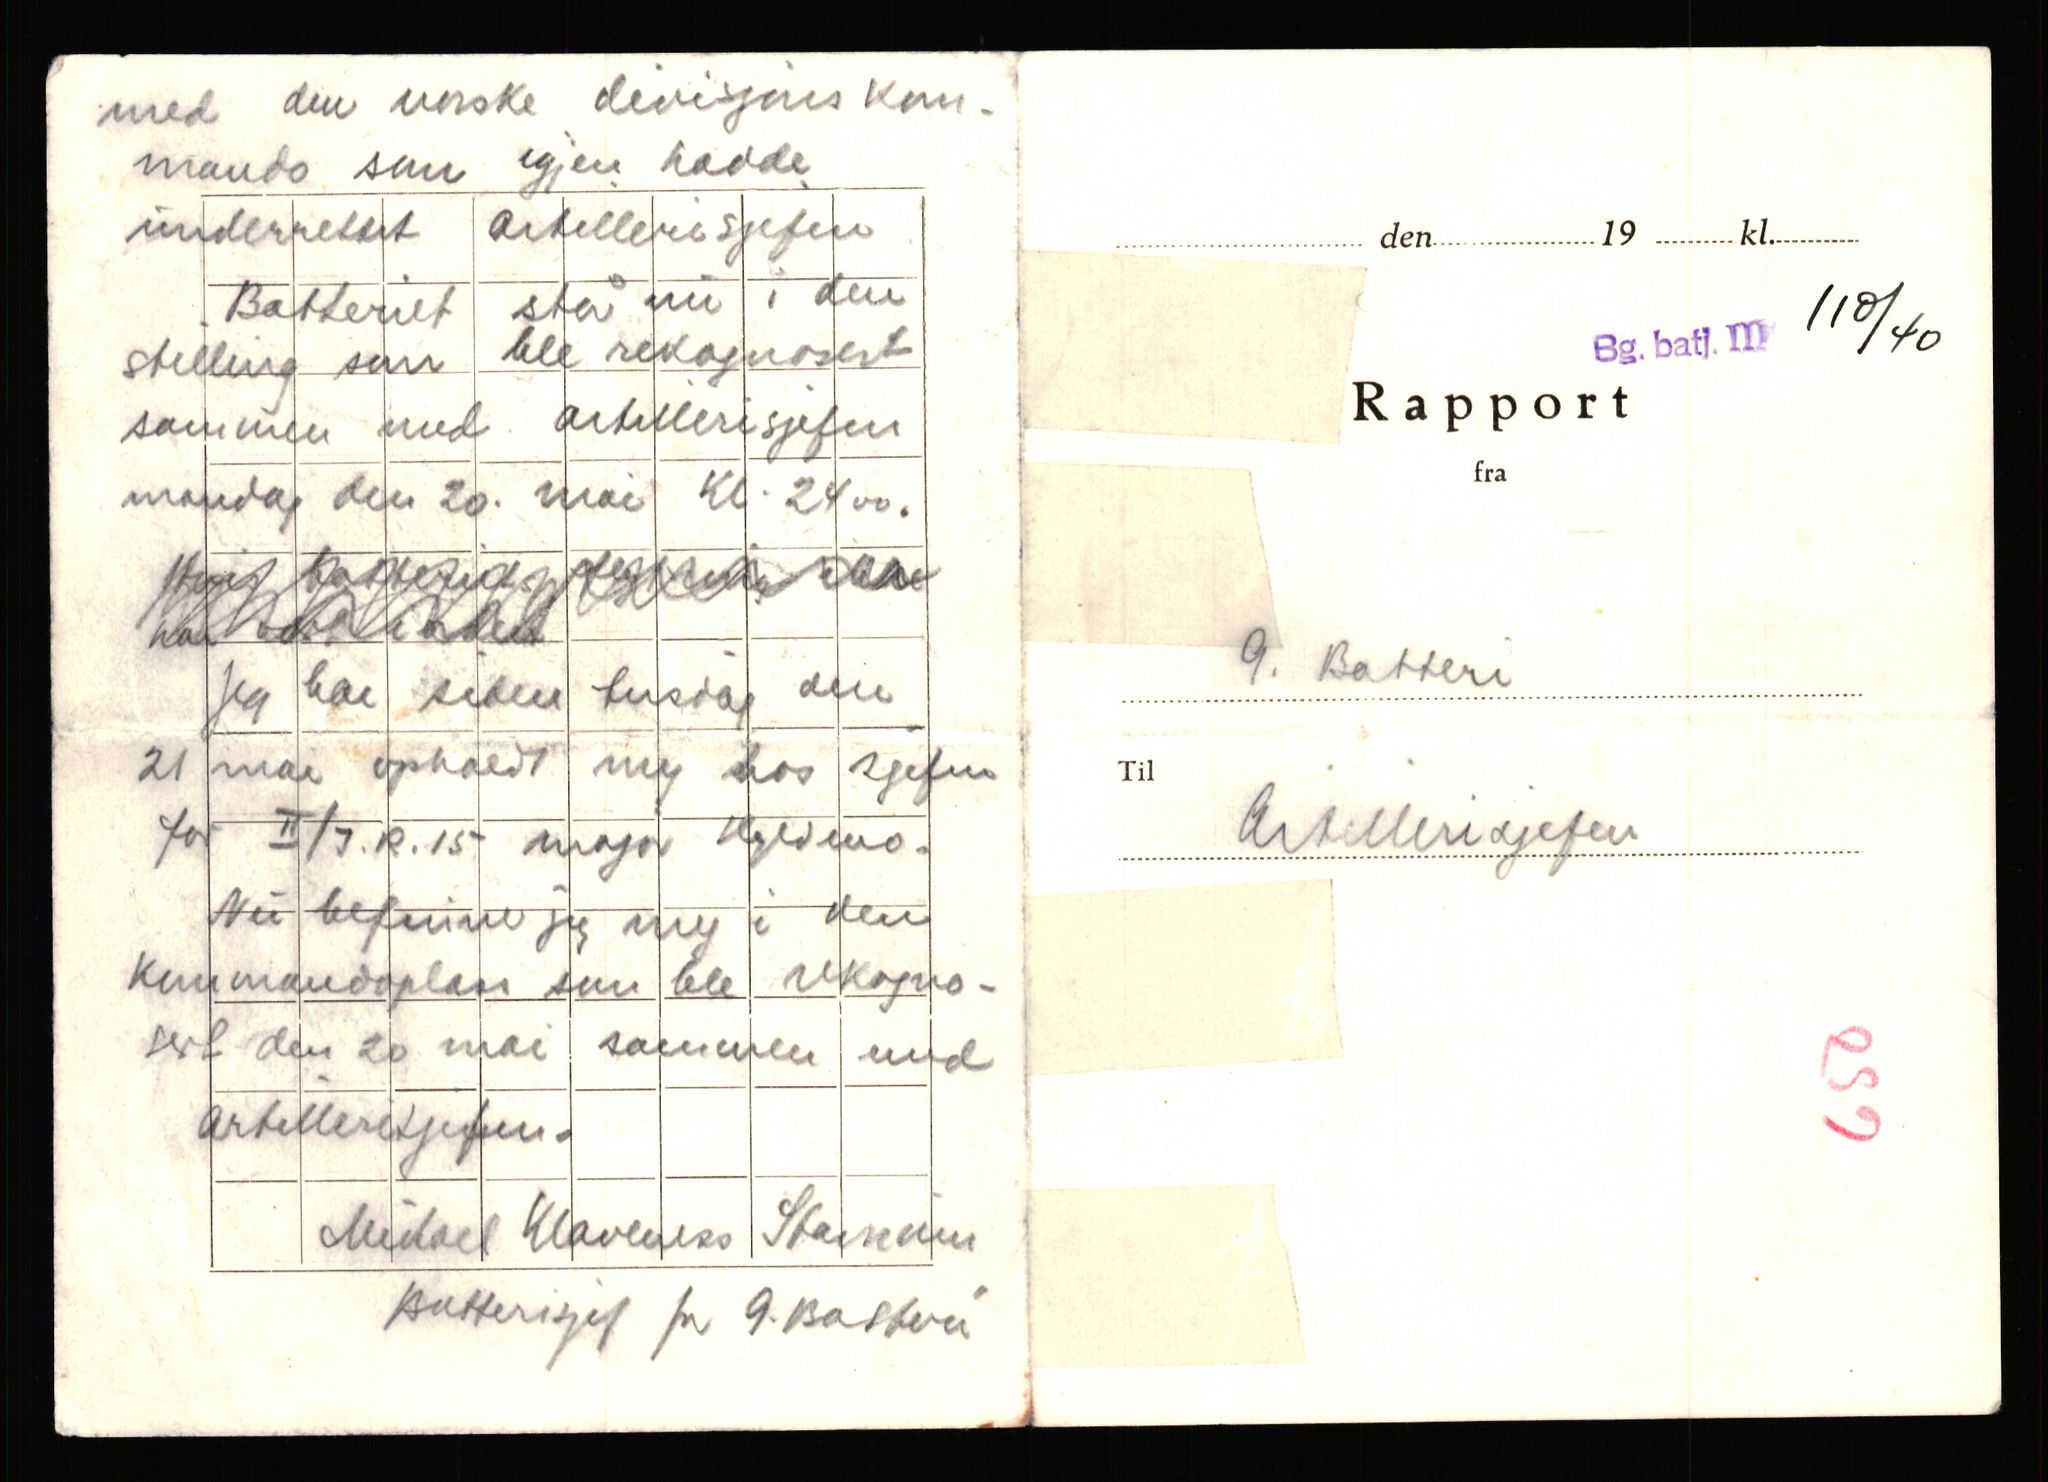 med den norske divisjons kom-
mando som igjen hadde
underrettet artillerisjefen
Batteriet står nu i den
stilling som ble rekognosert
sammen med artillerisjefen
mandag den 20. mai Kl. 2400.
Hvis batteriets ikke
har
Jeg har siden tirsdag den
21 mai opholdt mig hos sjefen
for II/J.R.15 major Hyldmo.
Nu befinner jeg mig i den
Kommandoplass som ble rekogno-
sert den 20 mai sammen med
Artillerisjefen.
Michael Klaveness
Batterisjef for 9. Batteri
den 19 kl.
110/40
Bg. batj. III
Rapport
fra
9. Batteri
Til
Artillerisjefen
259